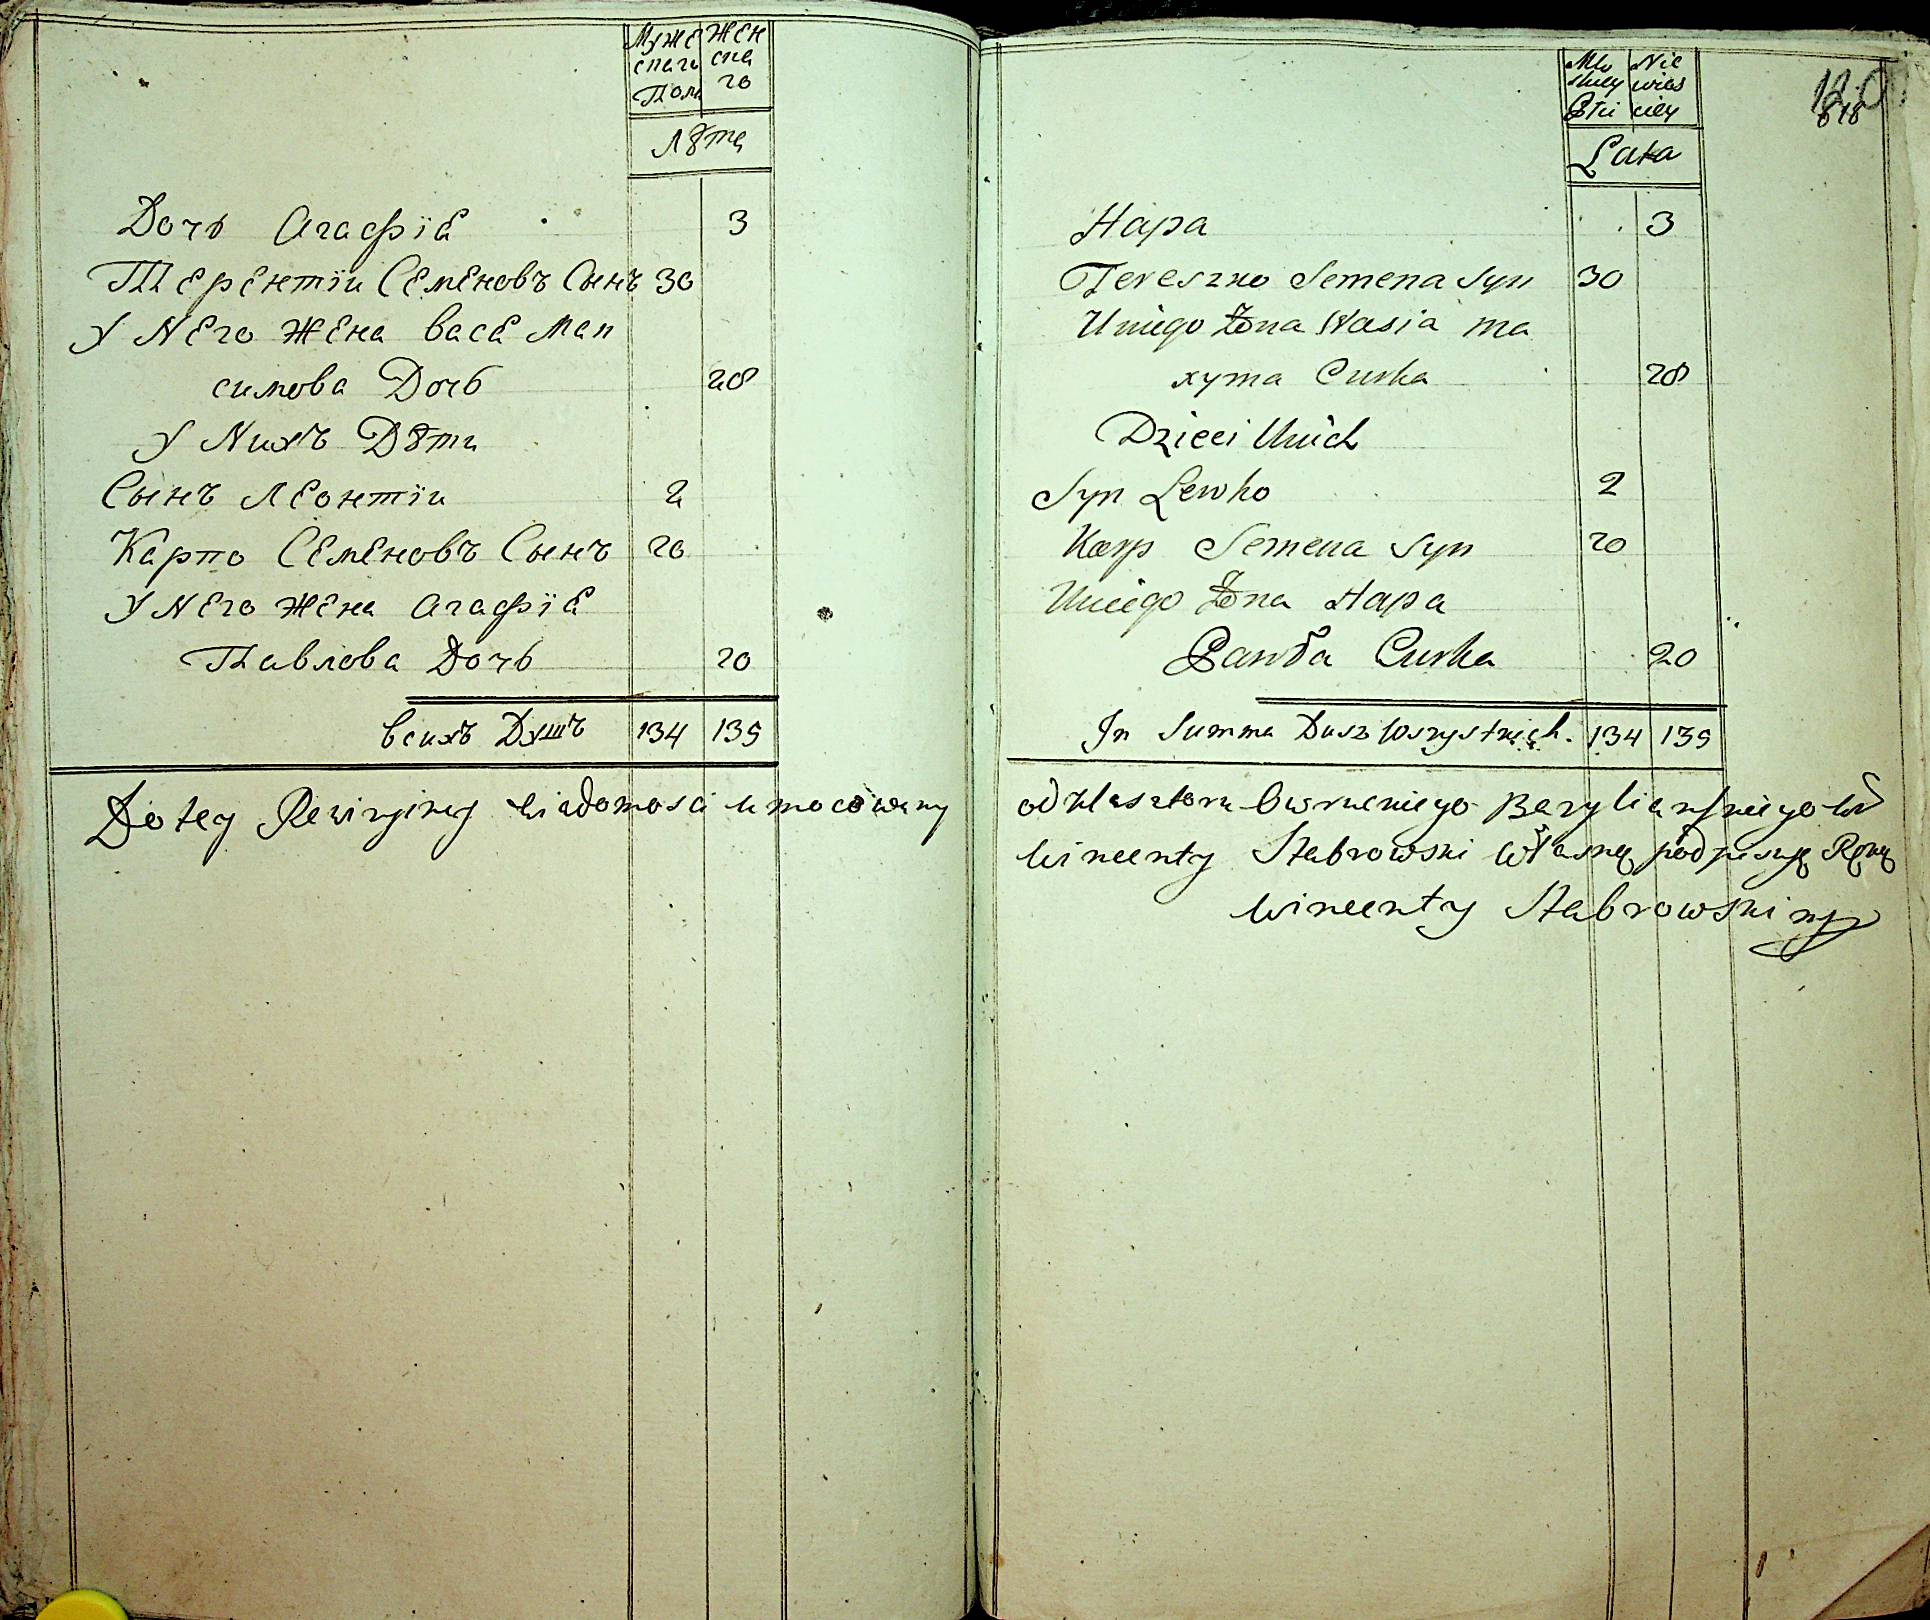 Муже Жен
скаго ска
Полы го
Лѣта
Дочь Агафїа 3
Терентїи Семеновъ Сынъ 30
У Него Жена Васа Мак
симова Дочь 28
У Нихъ Дѣти
Сынъ Леонтїи 2
Карпо Семеновъ Сынъ 20
У Него Жена Агафїа
Павлова Дочь 20
Всихъ Душъ 134 135
Do tey Rewizyiney wiadomosci umocowany
Mę Nie
skiey wies
Płci ciey
Lata
Hapa 3
Tereszko Semena Syn 30
Uniego Żona Wasia ma
xyma Curka 28
Dzieci Unich
Syn Lewko 2
Karp Semena Syn 20
Uniego Żona Hapa
Pawła Curka 20
In Summa Dusz Wszystkich. 134 135
od Klasztoru Owruckiego Bazylianskiego
Wincenty Stabrowski Własną podpisuję Ręką
Wincenty Stabrowski mp